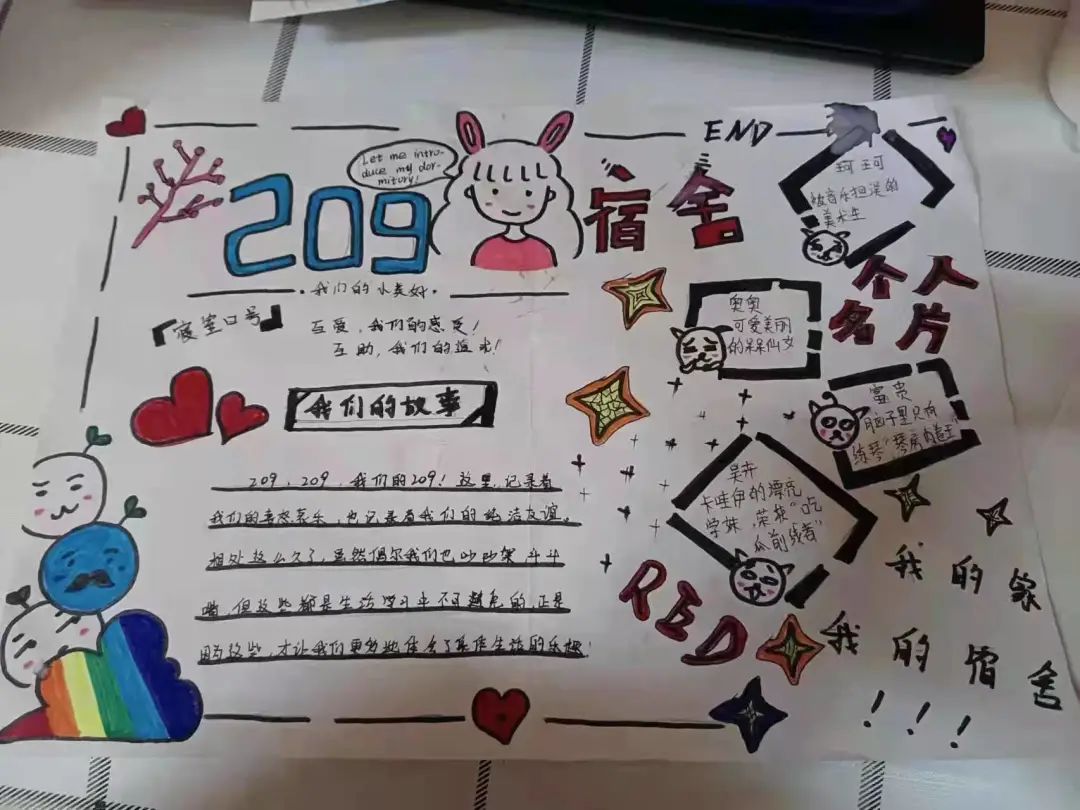 Let me intro-
duce my dor-
mitory!
END
209
宿舍
·我们的小美好·
寝室口号
互爱，我们的感受！
互助，我们的追求！
我们的故事
209，209，我们的209！这里，记录着
我们的喜怒哀乐，也记录着我们的纯洁友谊。
相处这么久了，虽然偶尔我们也吵吵架斗斗
嘴，但这些都是生活学习中不可避免的，正是
因为这些，才让我们更多地体会了集体生活的乐趣！
珂珂
被音乐担误的
美术生
个人
名片
奥奥
可爱美丽
的呆呆仙女
富贵
脑子里只有
练琴"琴房
吴卉
卡哇伊的漂亮
学妹，荣获"吃
瓜前线者"
RED
我的家
我的宿舍
！！！